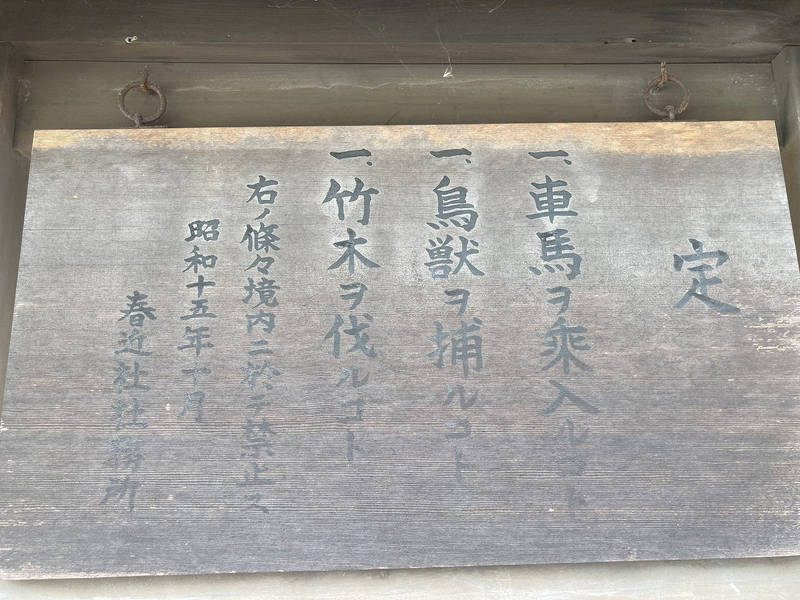 定
一、車馬ヲ乘入ルコト
一、鳥獣ヲ捕ルコト
一、竹木ヲ伐ルコト
右ノ條々境内ニ於テ禁止ス
昭和十五年十月
春近社社務所